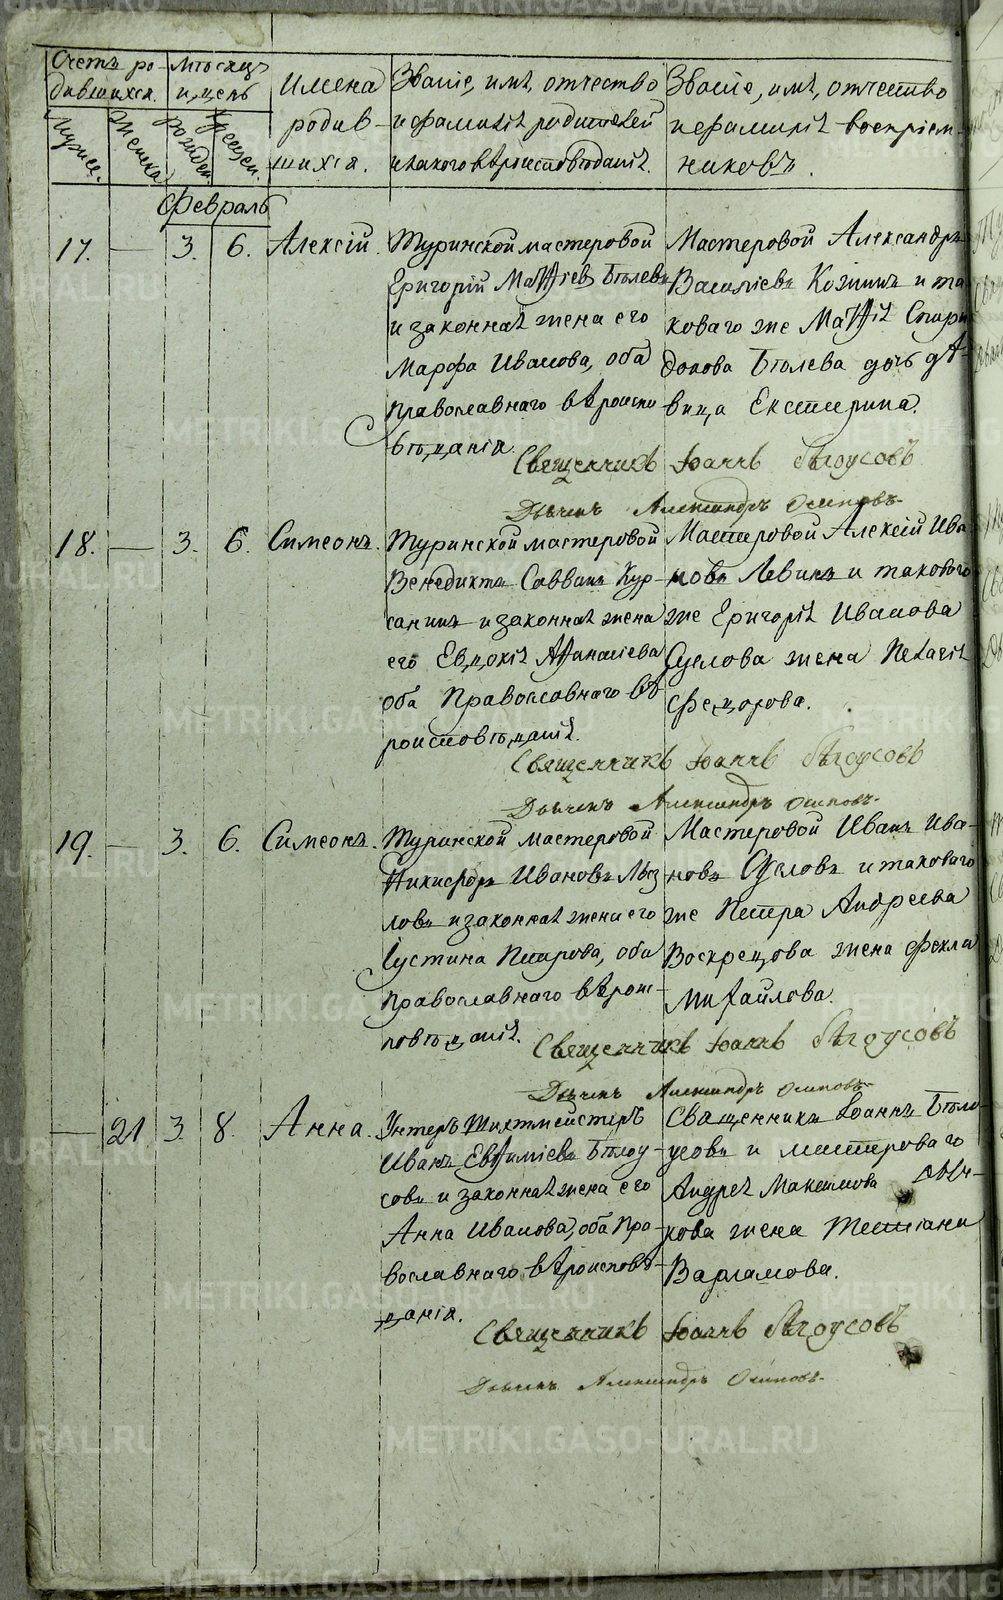 Счетъ ро-
дившихся.
Мѣсяцъ
и день
Имена
родив-
шихся.
Званіе, имя, отчество
и фамилія родителей
и какого вѣроисповѣданія.
Званіе, имя, отчество
и фамилія воспріем-
никовъ.
Мужес.
Женска
рожден.
крещен.
Февраль
17. — 3. 6. Алексій.
Туринской мастеровой
Григорій Маѳѳіевъ Бѣлевъ
и законная жена его
Марфа Иванова, оба
православнаго вѣроиспо
вѣданія.
Мастеровой Александръ
Василіевъ Козинъ и та
коваго же Маѳѳія Спири
донова Бѣлева дочь дѣ-
вица Екатерина.
Священникъ Іоаннъ Бѣлоусовъ
Дьячекъ Александръ Осиповъ
18. — 3. 6. Симеонъ.
Туринской мастеровой
Венедиктъ Саввинъ Кур-
санинъ и законная жена
его Евдокія Аѳинасіева
оба Православнаго вѣ
роисповѣданія.
Мастеровой Алексій Ива
новъ Левинъ и таковаго
же Григорія Иванова
Суслова жена Пелагія
Федорова.
Священникъ Іоаннъ Бѣлоусовъ
Дьячекъ Александръ Осиповъ
19. — 3. 6. Симеонъ.
Туринской мастеровой
Никифоръ Ивановъ
ловъ и законная жена его
Іустина Петрова, оба
православнаго вѣроис-
повѣданія.
Мастеровой Иванъ Ива-
новъ Сусловъ и таковаго
же Петра Андреева
жена Фекла
Михайлова.
Священникъ Іоаннъ Бѣлоусовъ
Дьячекъ Александръ Осиповъ
— 21 3. 8. Анна.
Унтеръ Шихтмейстеръ
Иванъ Евѳиміевъ Бѣлоу-
совъ и законная жена его
Анна Иванова, оба пра-
вославнаго вѣроисповѣ-
данія.
Священникъ Іоаннъ Бѣло-
усовъ и мастероваго
Андрея Максимова
кова жена Татіана
Варламова.
Священникъ Іоаннъ Бѣлоусовъ
Дьячекъ Александръ Осиповъ
METRIKI.GASO-URAL.RU